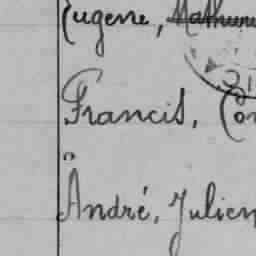 Eugene, Mathuri
Francis, Co
"
André, Julien